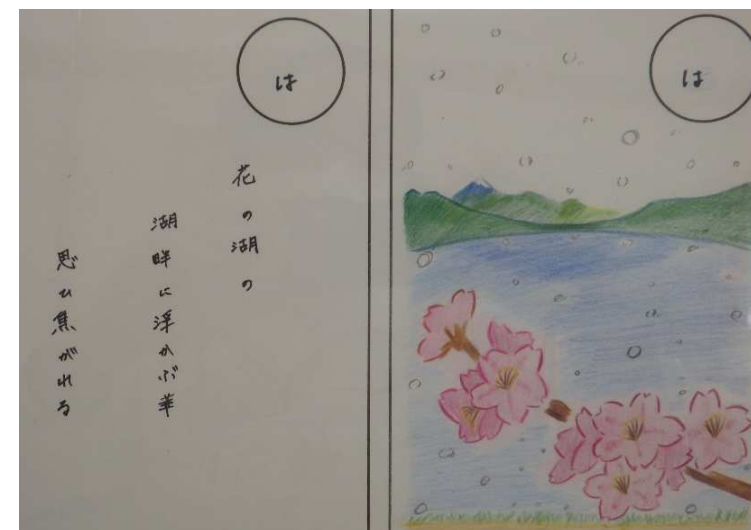 は
花の湖の
湖畔に浮かぶ華
思ひ焦がれる
は